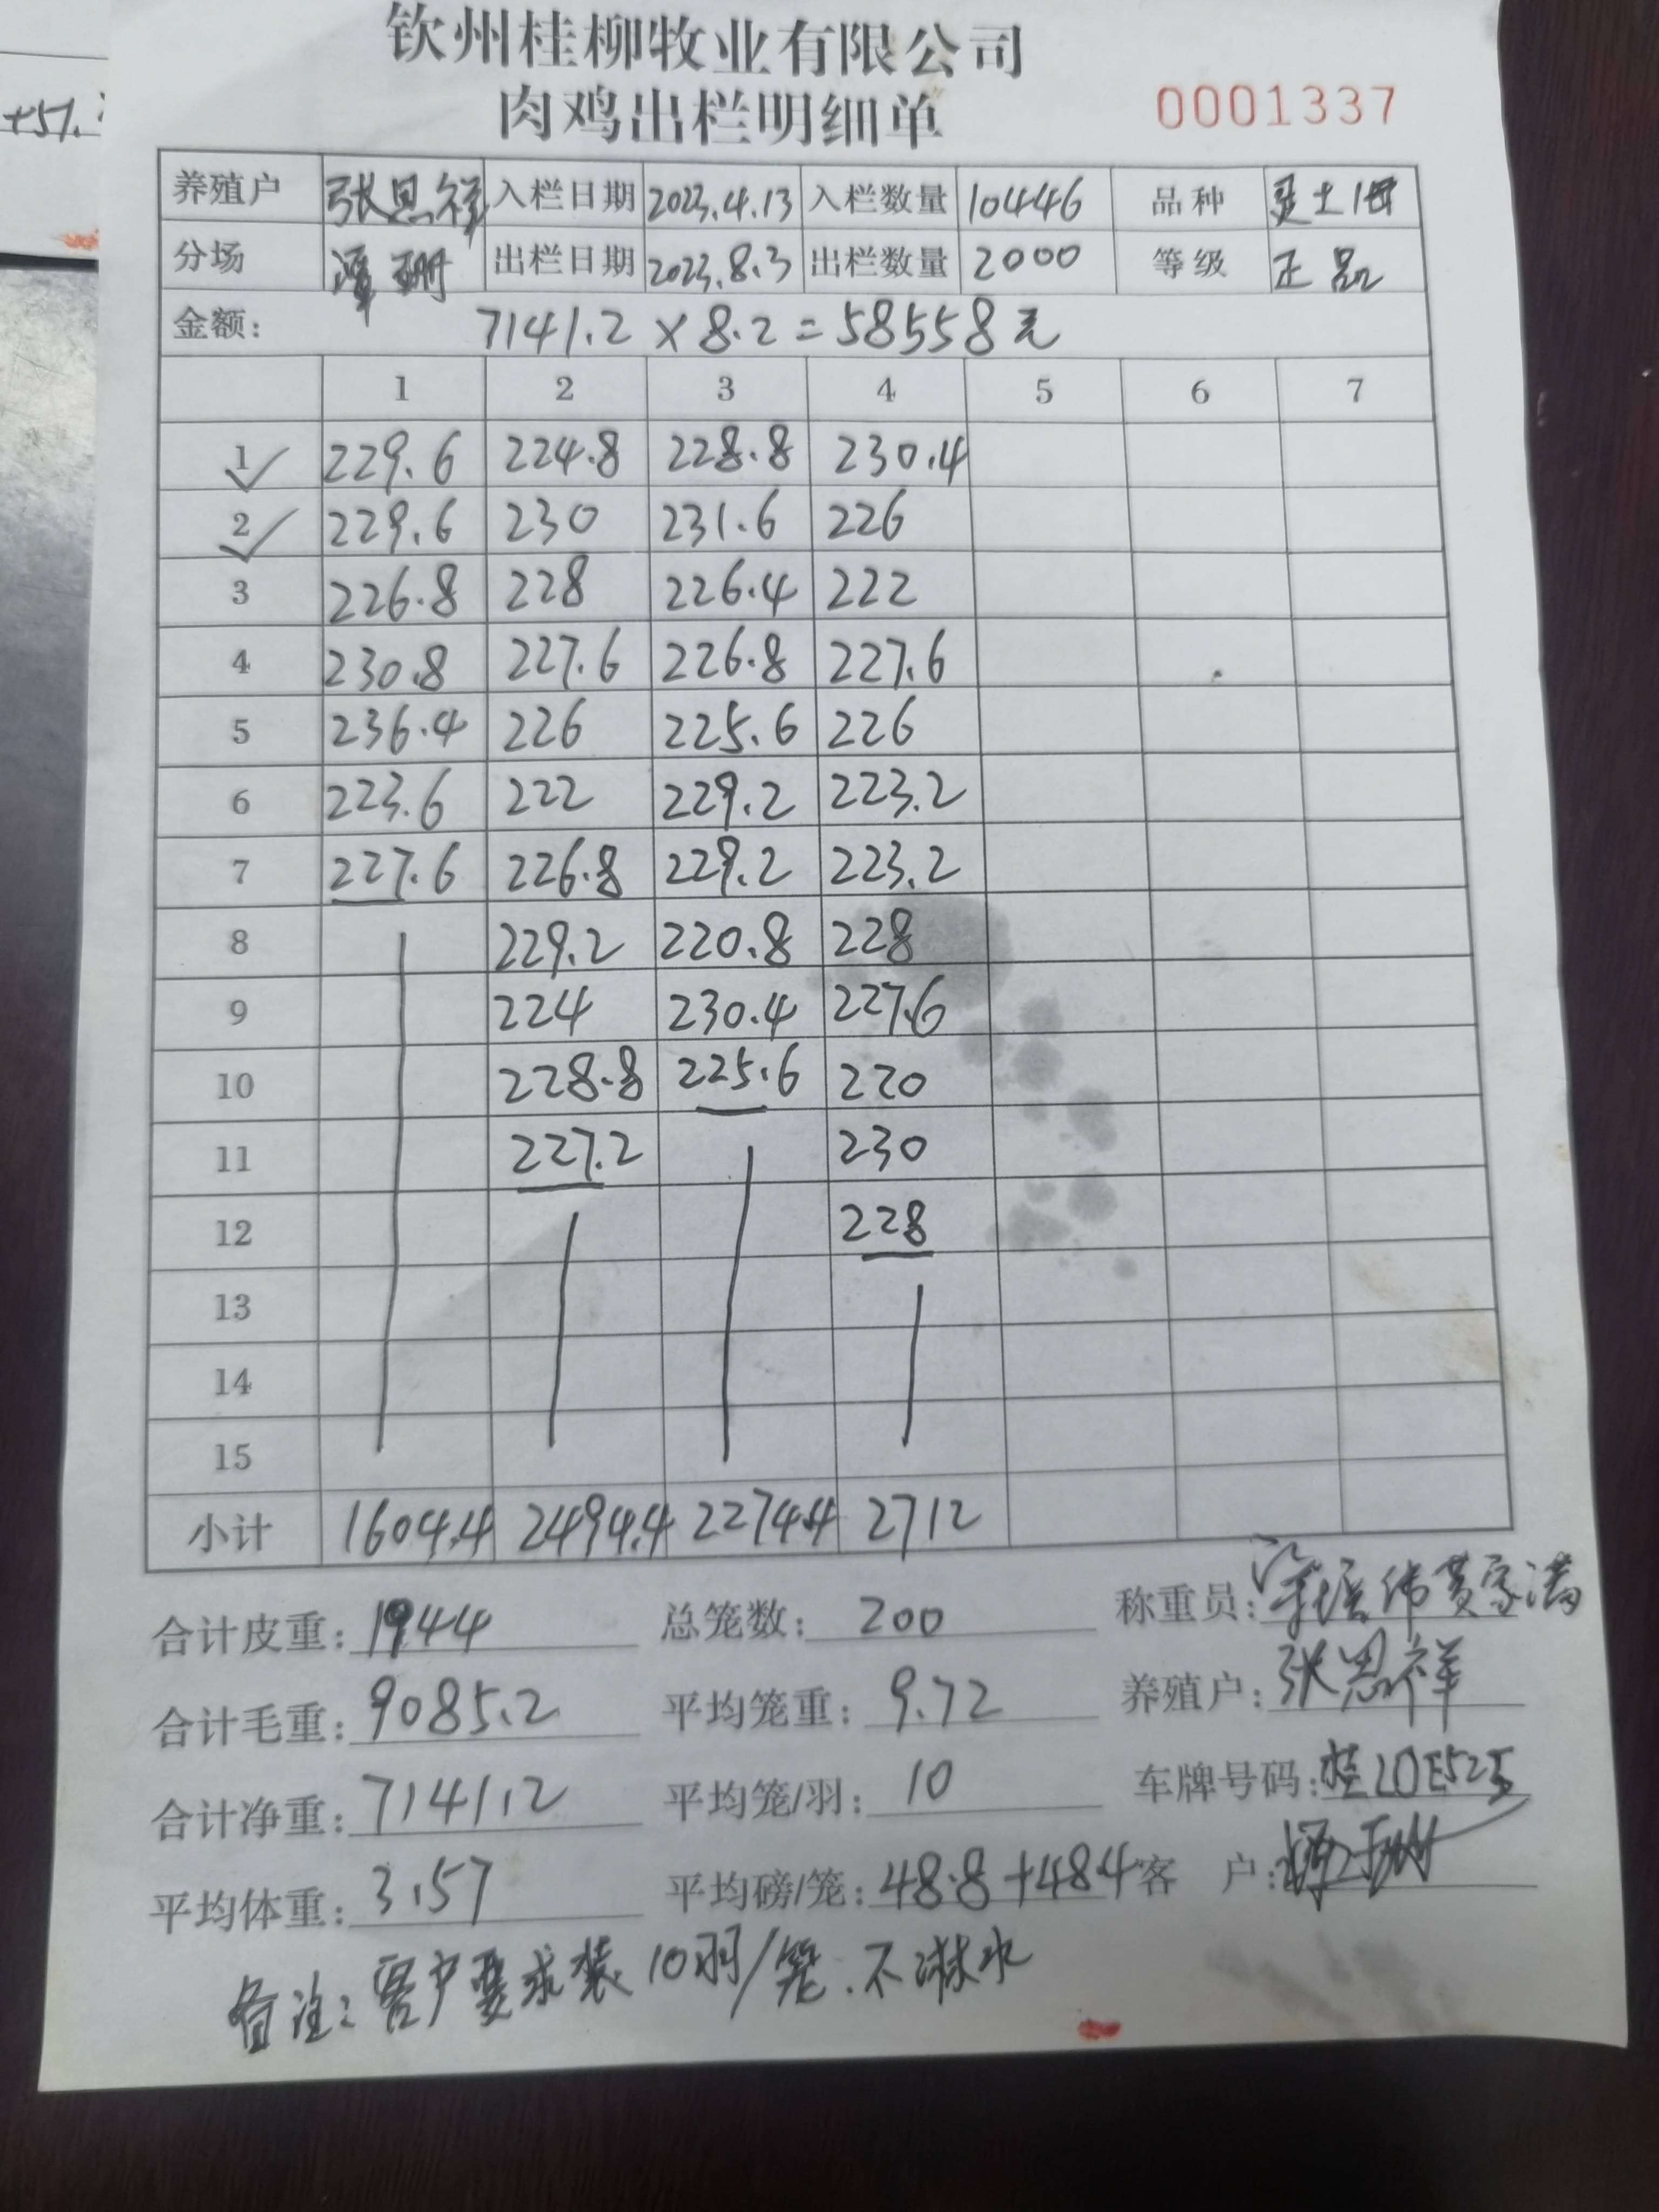 +57.
钦州桂柳牧业有限公司
肉鸡出栏明细单
0001337
养殖户 张思祥 入栏日期 2023.4.13 入栏数量 10446 品种 土
分场 潭珊 出栏日期 2023.8.3 出栏数量 2000 等级 正品
金额: 7141.2×8.2=58558元
1 2 3 4 5 6 7
1 229.6 224.8 228.8 230.4
2 229.6 230 231.6 226
3 226.8 228 226.4 222
4 230.8 227.6 226.8 227.6
5 236.4 226 225.6 226
6 223.6 222 229.2 223.2
7 227.6 226.8 229.2 223.2
8 229.2 220.8 228
9 224 230.4 227.6
10 228.8 225.6 220
11 227.2 230
12 228
13
14
15
小计 1604.4 2494.4 2274.4 2712
合计皮重: 1944 总笼数: 200 称重员: 伟黄家满
合计毛重: 9085.2 平均笼重: 9.72 养殖户: 张思祥
合计净重: 7141.2 平均笼/羽: 10 车牌号码: 桂L0E525
平均体重: 3.57 平均磅/笼: 48.8+48.4 客 户:
备注: 客户要求装10羽/笼.不淋水